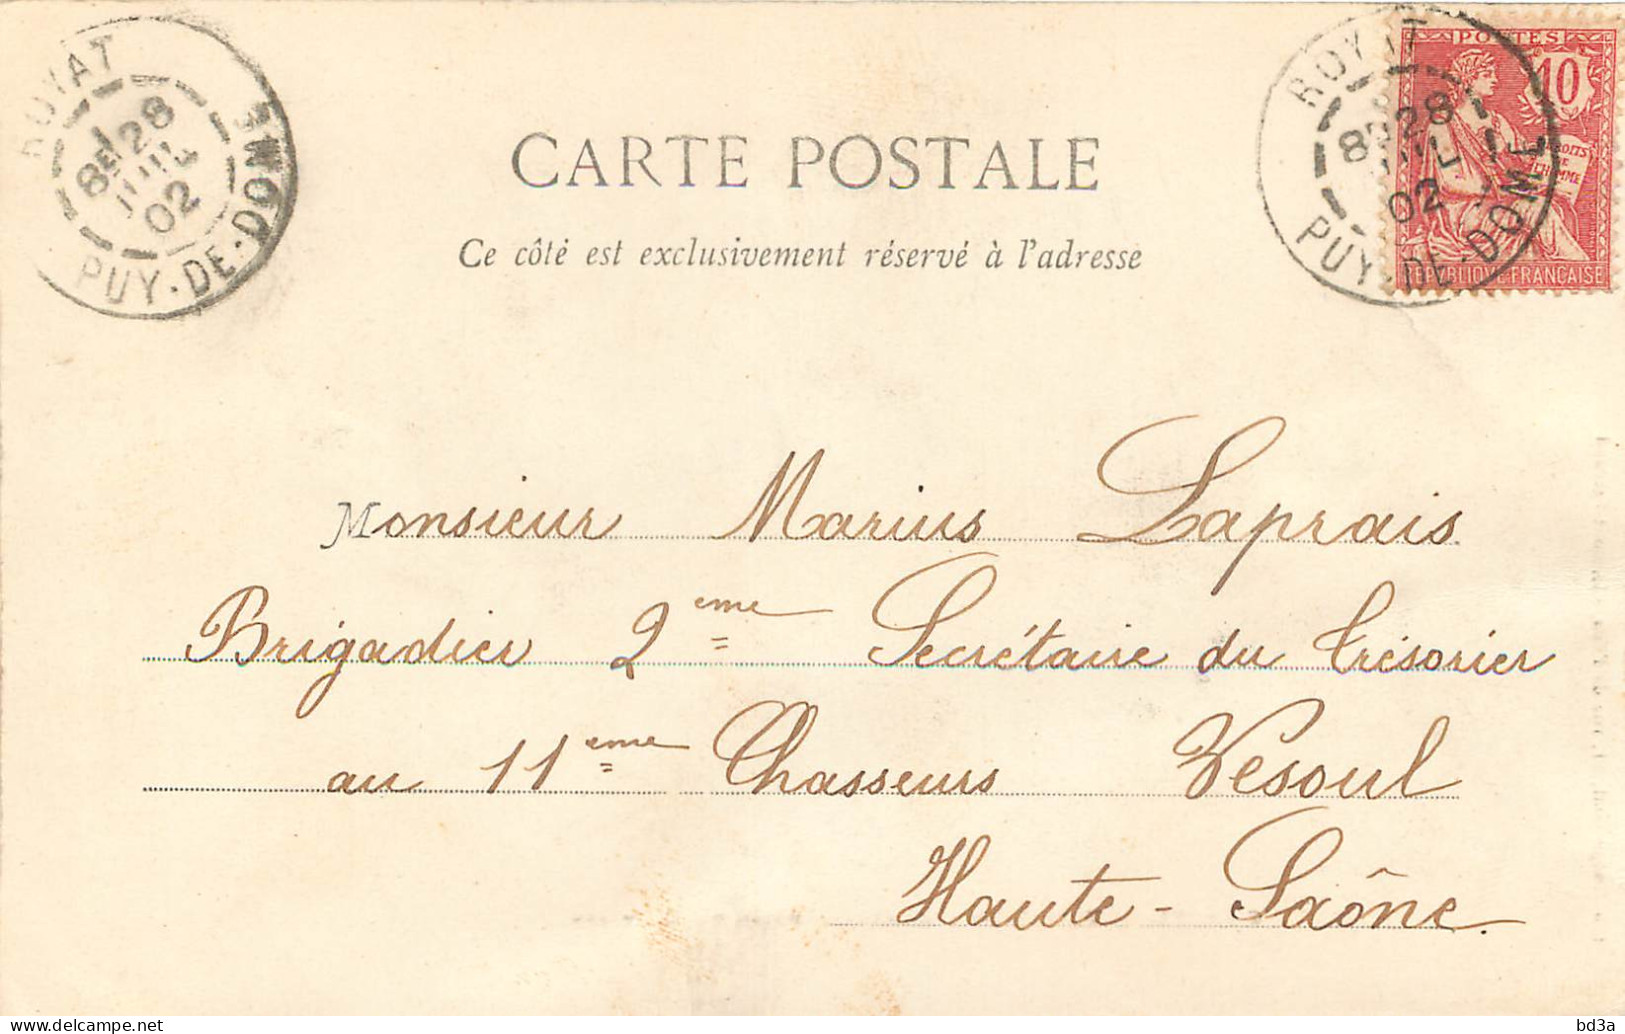 ROYAT
8E 28
JUIL
02
PUY-DE-DOME
ROYAT
8E 28
JUIL
02
PUY-DE-DOME
POSTES
10
DROITS
DE
L'HOMME
REPUBLIQUE FRANÇAISE
CARTE POSTALE
Ce côté est exclusivement réservé à l'adresse
Monsieur Marius Laprais
Brigadier 2eme Secrétaire du trésorier
au 11eme Chasseurs Vesoul
Haute-Saône.
bd3a